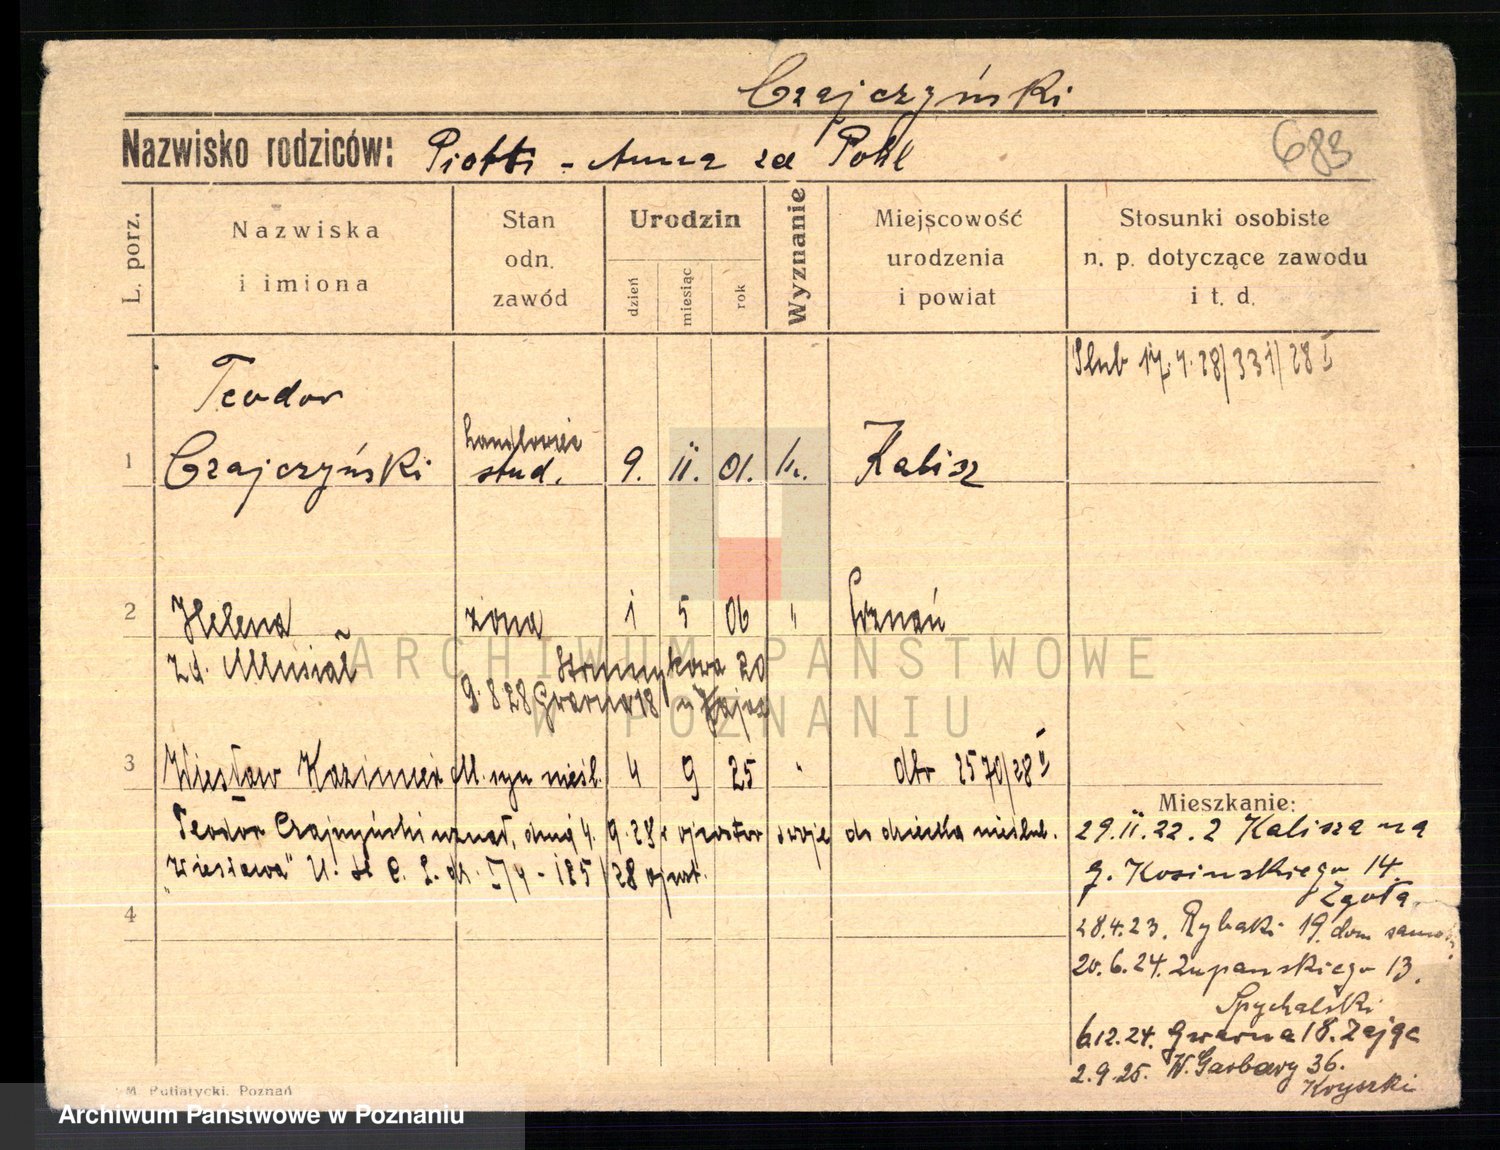 Czajczyński
Nazwisko rodziców: Piotr - Anna zd Pohl
683
L. porz.
Nazwiska i imiona
Stan odn. zawód
Urodzin
dzień
miesiąc
rok
Wyznanie
Miejscowość urodzenia i powiat
Stosunki osobiste n. p. dotyczące zawodu i t. d.
Ślub 17.4.28/331/28
Teodor
handlowiec
1 Czajczyński stud. 9. II. 01. Kalisz
2 Helena żona 1 5 06 " Poznań
zd. Musiał
Strumykowa 20
9.8 28 Gwarna 18 Zając
3 Wiesław Kazimierz M. syn nieśl. 4 9 25 " 2570/28
Teodor Czajczyński uznał, dnia 4. 9. 28 r ojcostwo swoje do dziecka nieślub.
"Wiesława" U. S. C. 185/28
4
Mieszkanie:
29.II.22. z Kalisza na
g. Kosinskiego 14.
Zgoła.
28.4.23. Rybaki 19. dom
20.6.24. Zupanskiego 13.
Spychalski
6.12.24. Gwarna 18. Zając
2.9.25. W. Garbary 36.
Kryszki
M. Putiatycki, Poznań
ARCHIWUM PAŃSTWOWE
W POZNANIU
Archiwum Państwowe w Poznaniu